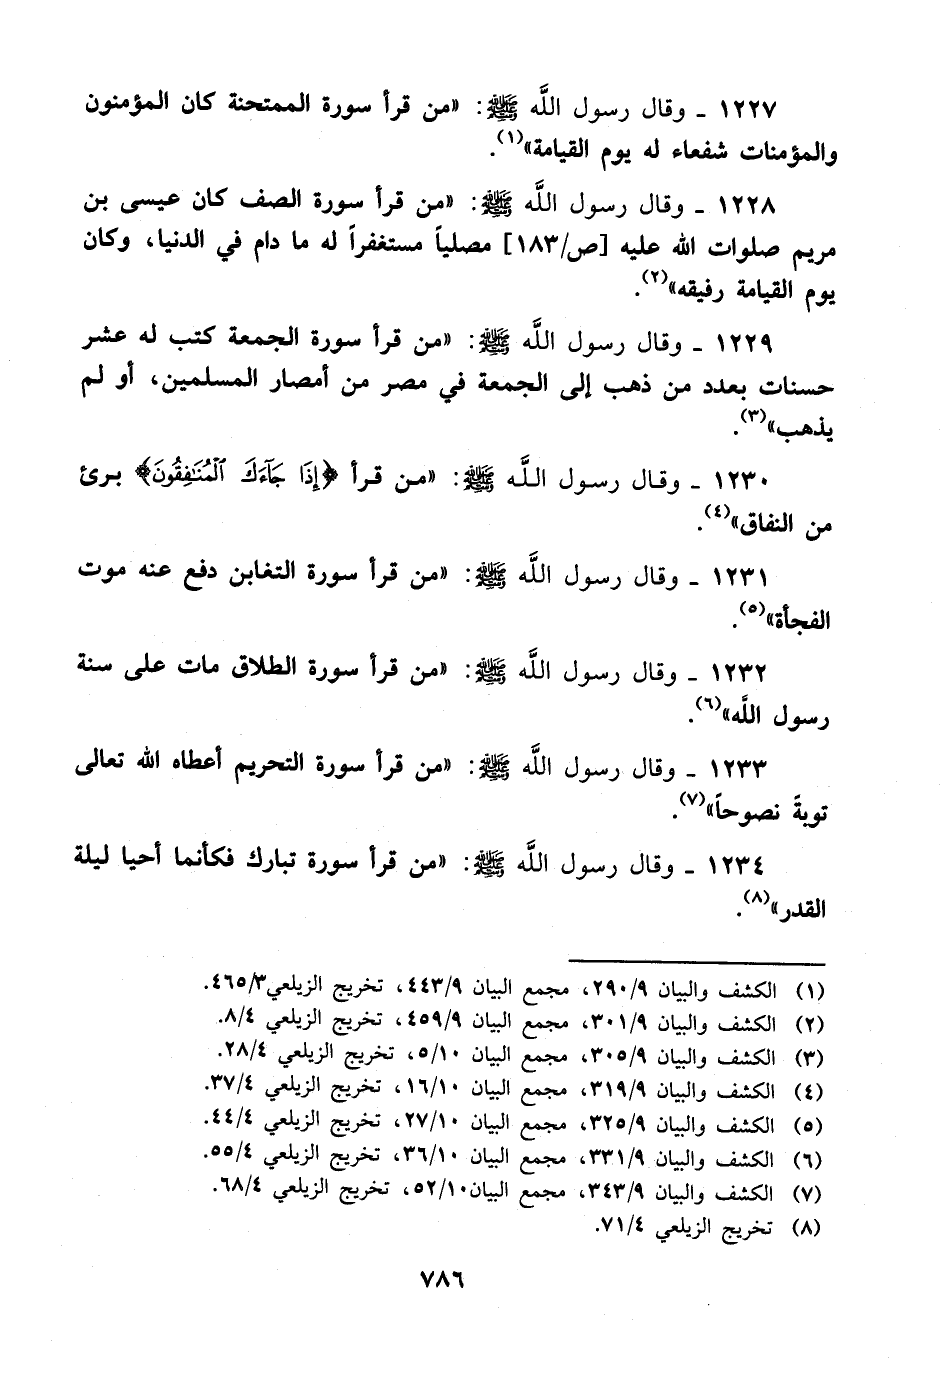 ١٢٢٧ ـ وقال رسول اللَّه ﷺ: «من قرأ سورة الممتحنة كان المؤمنون
والمؤمنات شفعاء له يوم القيامة»(١).
١٢٢٨ ـ وقال رسول اللَّه ﷺ: «من قرأ سورة الصف كان عيسى بن
مريم صلوات الله عليه [ص/١٨٣] مصلياً مستغفراً له ما دام في الدنيا، وكان
يوم القيامة رفيقه»(٢).
١٢٢٩ ـ وقال رسول اللَّه ﷺ: «من قرأ سورة الجمعة كتب له عشر
حسنات بعدد من ذهب إلى الجمعة في مصر من أمصار المسلمين، أو لم
يذهب»(٣).
١٢٣٠ ـ وقال رسول اللَّه ﷺ: «من قرأ ﴿إِذَا جَآءَكَ ٱلْمُنَـٰفِقُونَ﴾ برئ
من النفاق»(٤).
١٢٣١ ـ وقال رسول اللَّه ﷺ: «من قرأ سورة التغابن دفع عنه موت
الفجأة»(٥).
١٢٣٢ ـ وقال رسول اللَّه ﷺ: «من قرأ سورة الطلاق مات على سنة
رسول اللَّه»(٦).
١٢٣٣ ـ وقال رسول اللَّه ﷺ: «من قرأ سورة التحريم أعطاه الله تعالى
توبةً نصوحاً»(٧).
١٢٣٤ ـ وقال رسول اللَّه ﷺ: «من قرأ سورة تبارك فكأنما أحيا ليلة
القدر»(٨).
(١) الكشف والبيان ٢٩٠/٩، مجمع البيان ٤٤٣/٩، تخريج الزيلعي٤٦٥/٣.
(٢) الكشف والبيان ٣٠١/٩، مجمع البيان ٤٥٩/٩، تخريج الزيلعي ٨/٤.
(٣) الكشف والبيان ٣٠٥/٩، مجمع البيان ٥/١٠، تخريج الزيلعي ٢٨/٤.
(٤) الكشف والبيان ٣١٩/٩، مجمع البيان ١٦/١٠، تخريج الزيلعي ٣٧/٤.
(٥) الكشف والبيان ٣٢٥/٩، مجمع البيان ٢٧/١٠، تخريج الزيلعي ٤٤/٤.
(٦) الكشف والبيان ٣٣١/٩، مجمع البيان ٣٦/١٠، تخريج الزيلعي ٥٥/٤.
(٧) الكشف والبيان ٣٤٣/٩، مجمع البيان٥٢/١٠، تخريج الزيلعي ٦٨/٤.
(٨) تخريج الزيلعي ٧١/٤.
٧٨٦